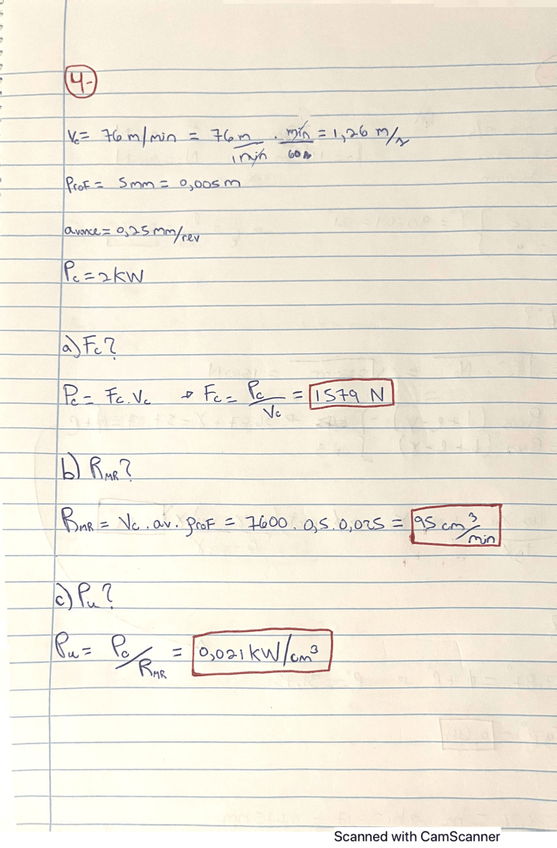 4-
Vc = 76 m/min = 76 m/1 min . min/60 s = 1,26 m/s
Prof = 5mm = 0,005m
avance = 0,25 mm/rev
Pc = 2kW
a) Fc?
Pc = Fc.Vc → Fc = Pc/Vc = 1579 N
b) RMR?
RMR = Vc.av.prof = 7600.0,5.0,025 = 95 cm³/min
c) Pu?
Pu = Pc/RMR = 0,021 kW/cm³
Scanned with CamScanner